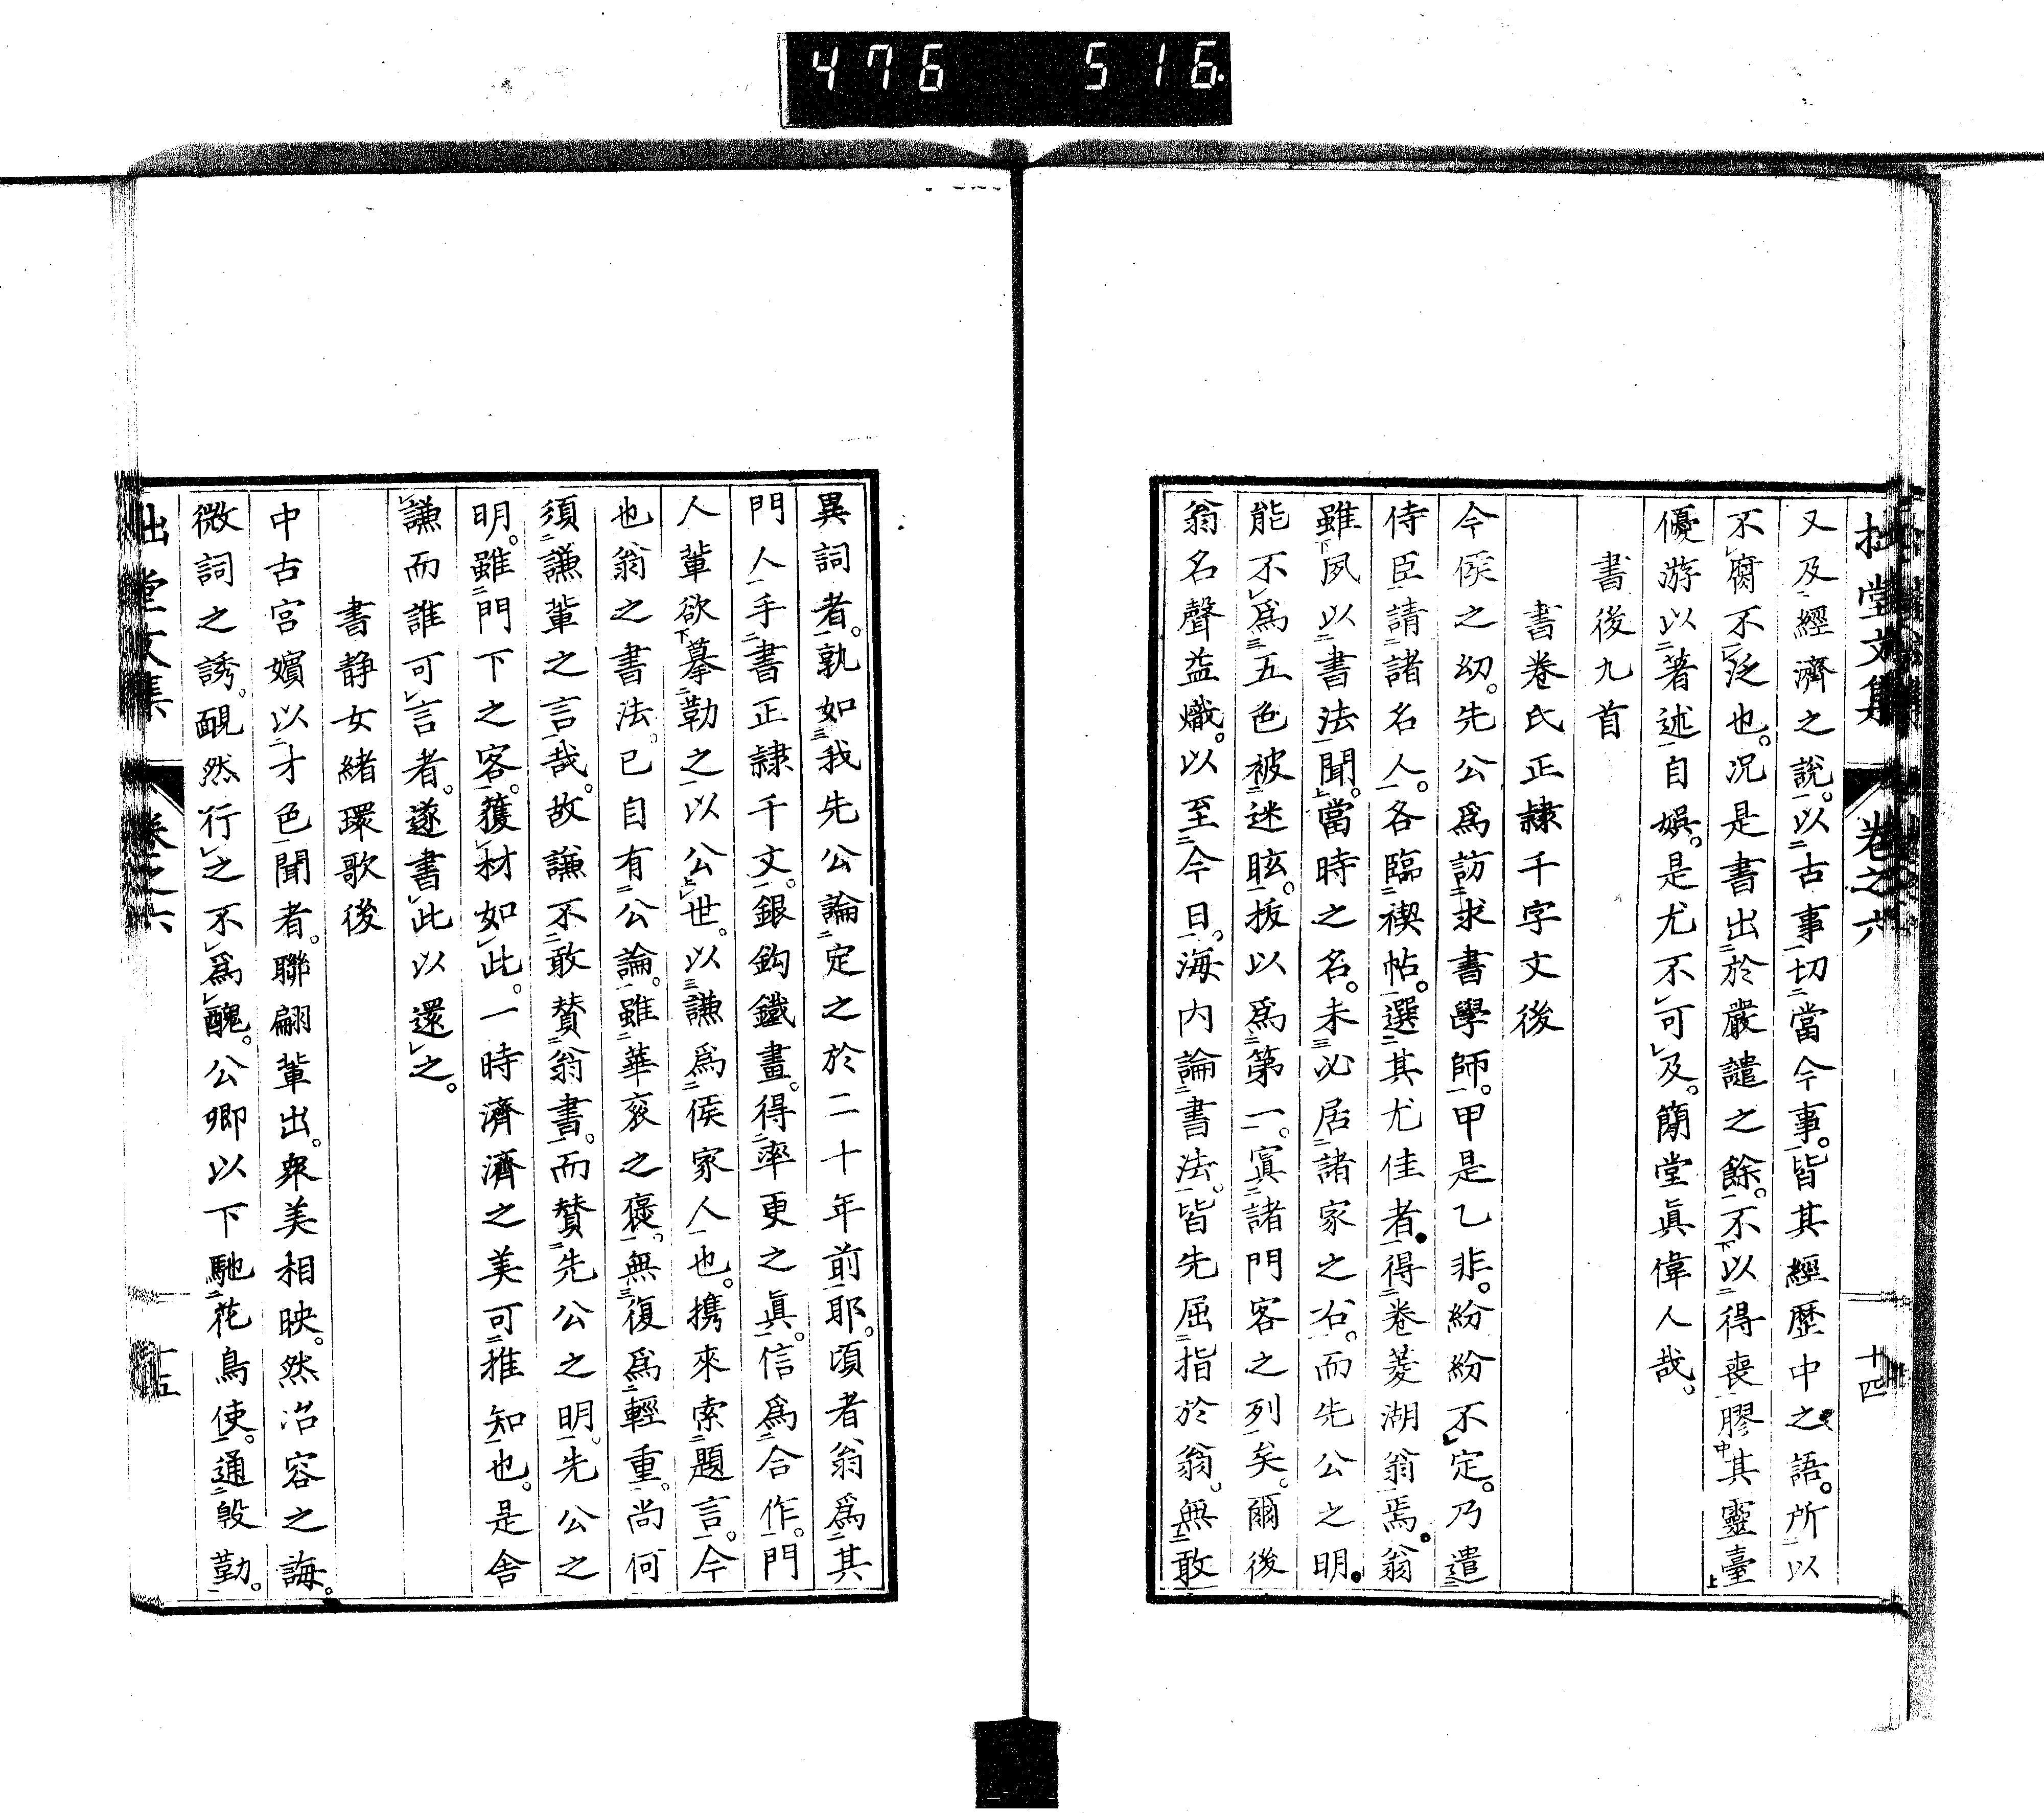 476 516.
拙堂文集 卷之六 十四
又及經濟之說。以古事切當今事。皆其經歷中之語。所以
不腐不泛也。况是書出於嚴譴之餘。不以得喪膠其靈臺
優游以著述自娛。是尤不可及。簡堂眞偉人哉。
書後九首
書卷氏正隸千字文後
今侯之幼。先公爲訪求書學師。甲是乙非。紛紛不定。乃遣
侍臣請諸名人。各臨禊帖。選其尤佳者。得卷菱湖翁焉。翁
雖夙以書法聞。當時之名。未必居諸家之右。而先公之明。
能不爲五色被迷眩。拔以爲第一。寘諸門客之列矣。爾後
翁名聲益熾。以至今日。海内論書法。皆先屈指於翁。無敢
異詞者。孰如我先公論定之於二十年前耶。頃者翁爲其
門人手書正隸千文。銀鈎鐵畫。得率更之眞。信爲合作。門
人輩欲摹勒之以公世。以謙爲侯家人也。携來索題言。今
也翁之書法。已自有公論。雖華衮之褒。無復爲輕重。尚何
須謙輩之言哉。故謙不敢贊翁書。而贊先公之明。先公之
明。雖門下之客。獲材如此。一時濟濟之美可推知也。是舍
謙而誰可言者。遂書此以還之。
書静女緒環歌後
中古宮嬪以才色聞者。聯翩輩出。衆美相映。然冶容之誨。
微詞之誘。靦然行之不爲醜。公卿以下馳花鳥使。通慇勤。
拙堂文集 卷之六 十五